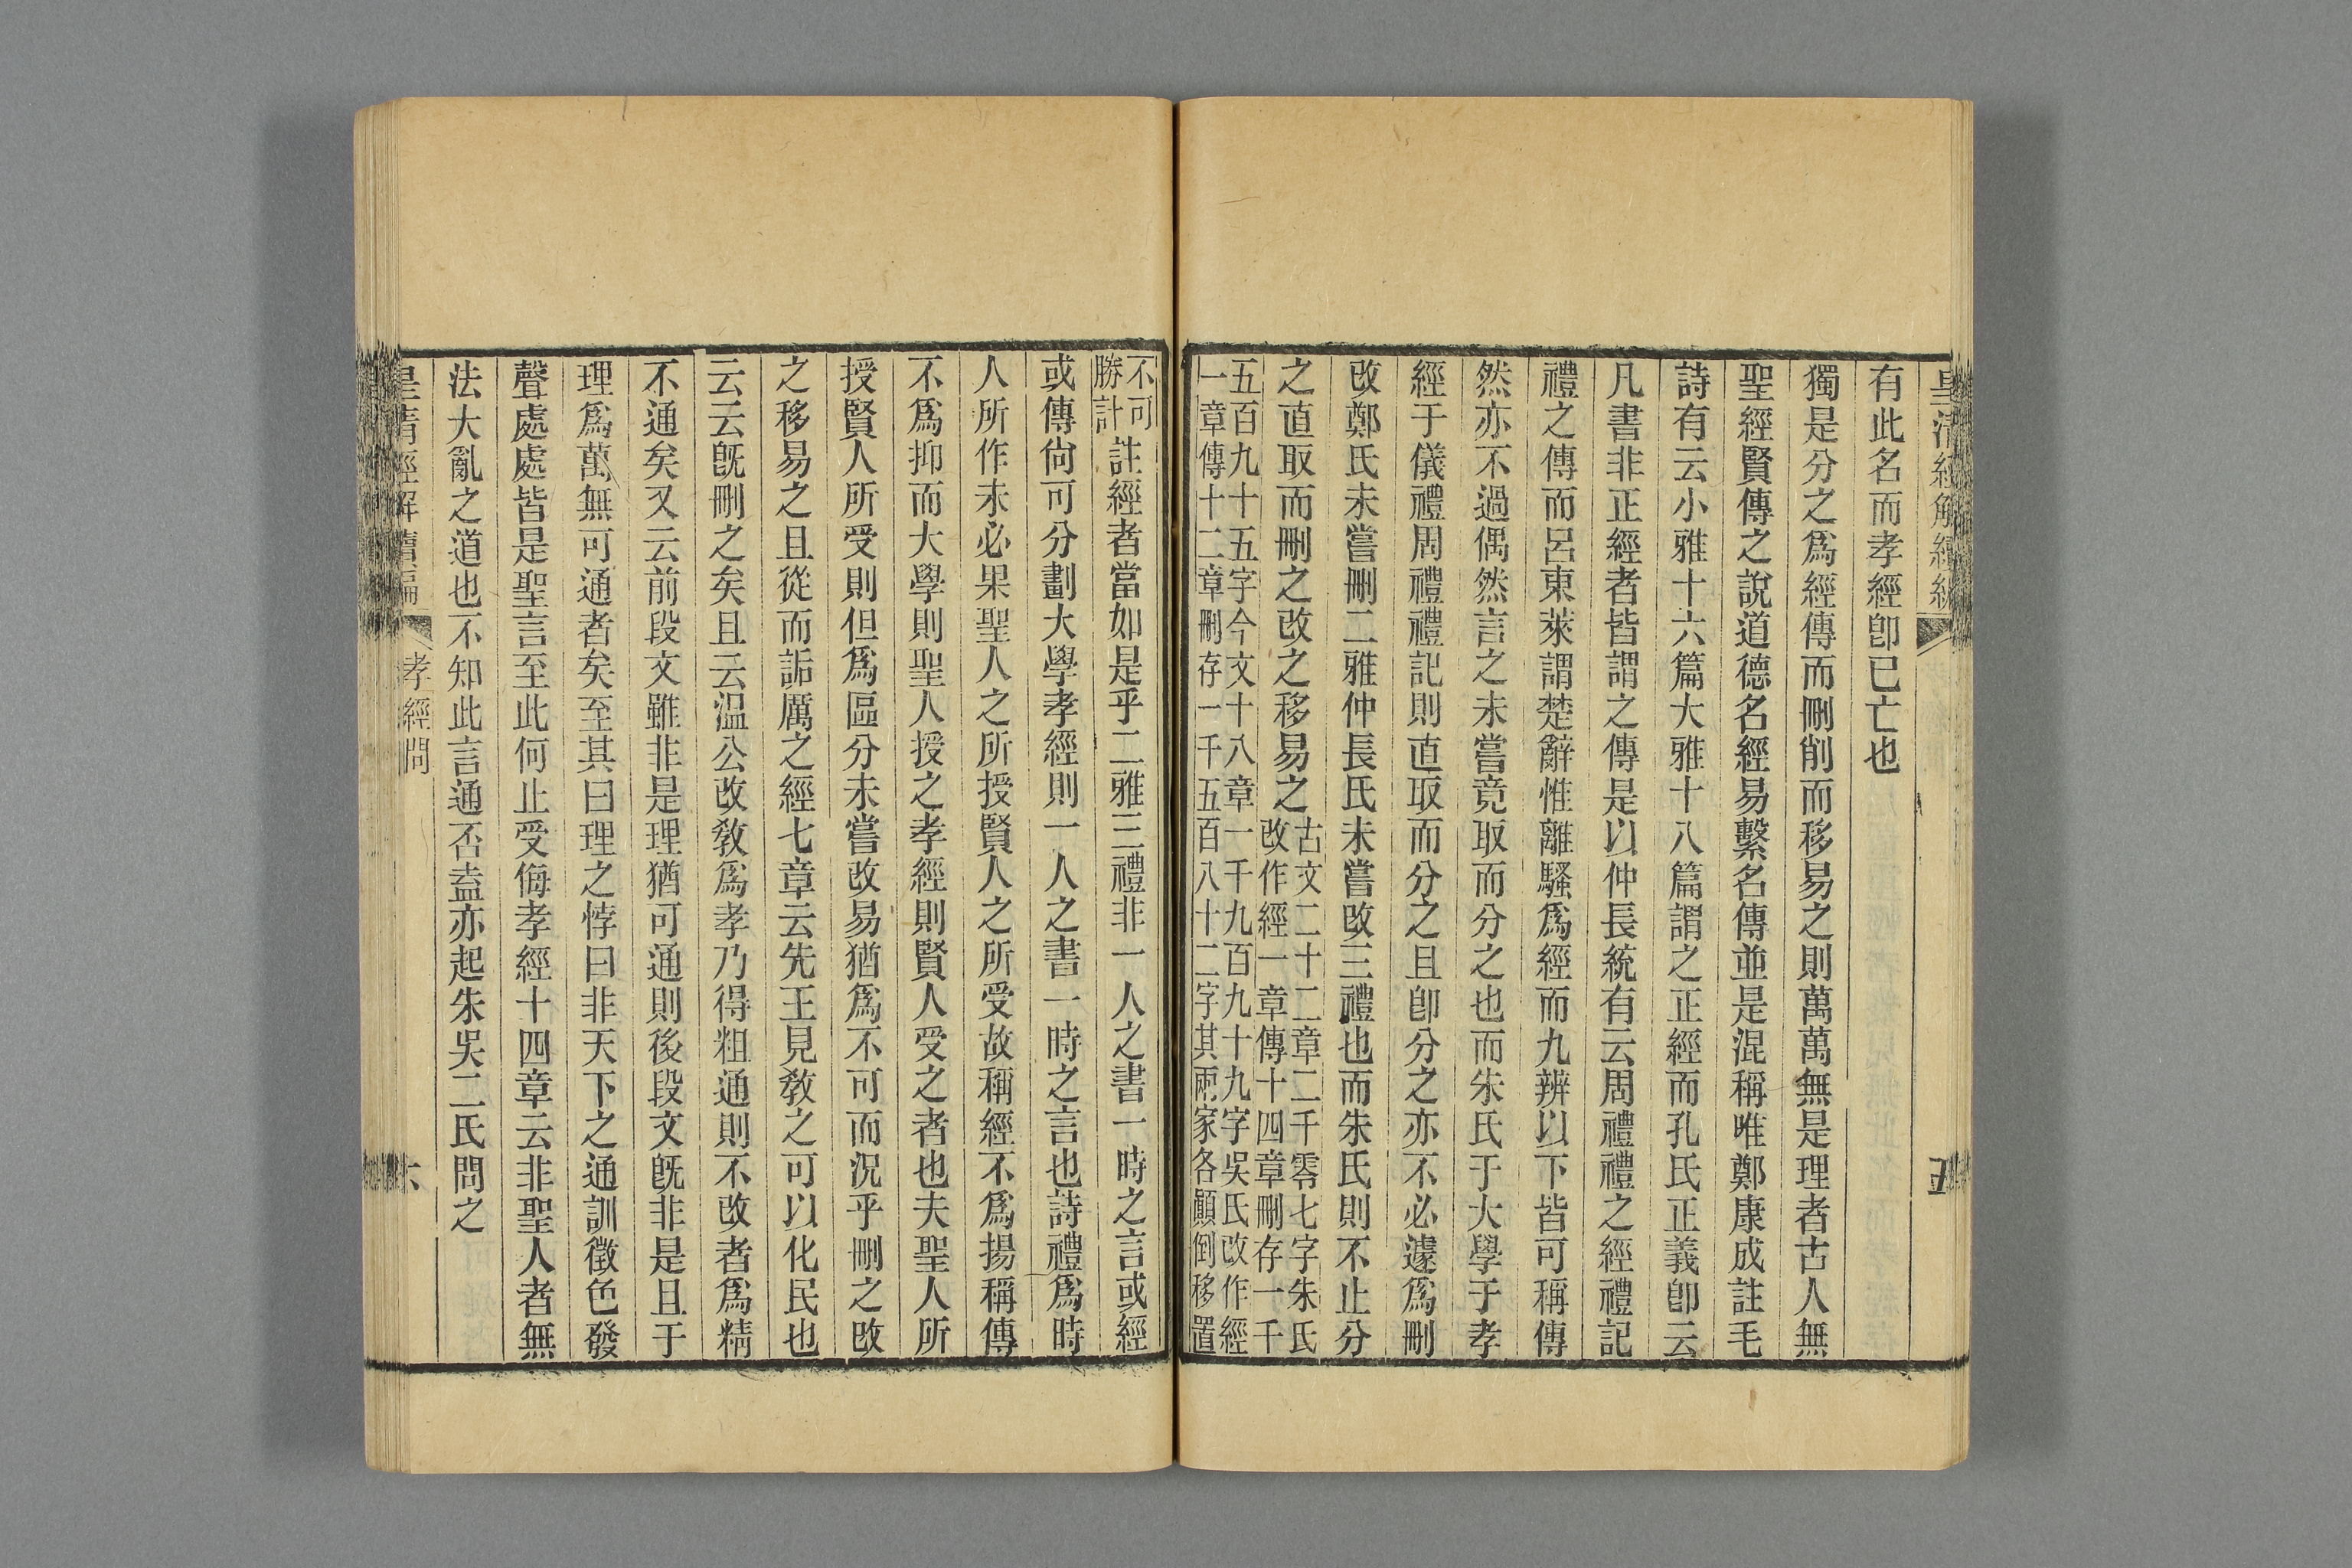 皇清經解續編
五
有此名而孝經卽已亡也
獨是分之爲經傳而刪削而移易之則萬萬無是理者古人無
聖經賢傳之說道德名經易繫名傳並是混稱唯鄭康成註毛
詩有云小雅十六篇大雅十八篇謂之正經而孔氏正義卽云
凡書非正經者皆謂之傳是以仲長統有云周禮禮之經禮記
禮之傳而呂東萊謂楚辭惟離騷爲經而九辨以下皆可稱傳
然亦不過偶然言之未嘗竟取而分之也而朱氏于大學于孝
經于儀禮周禮禮記則直取而分之且卽分之亦不必遽爲刪
改鄭氏未嘗刪二雅仲長氏未嘗改三禮也而朱氏則不止分
之直取而刪之改之移易之古文二十二章二千零七字朱氏
改作經一章傳十四章刪存一千
五百九十五字今文十八章一千九百九十九字吳氏改作經
一章傳十二章刪存一千五百八十二字其兩家各顚倒移置
不可
勝計註經者當如是乎二雅三禮非一人之書一時之言或經
或傳尙可分劃大學孝經則一人之書一時之言也詩禮爲時
人所作未必果聖人之所授賢人之所受故稱經不爲揚稱傳
不爲抑而大學則聖人授之孝經則賢人受之者也夫聖人所
授賢人所受則但爲區分未嘗改易猶爲不可而況乎刪之改
之移易之且從而詬厲之經七章云先王見敎之可以化民也
云云旣刪之矣且云溫公改敎爲孝乃得粗通則不改者爲精
不通矣又云前段文雖非是理猶可通則後段文旣非是且于
理爲萬無可通者矣至其曰理之悖曰非天下之通訓徵色發
聲處處皆是聖言至此何止受侮孝經十四章云非聖人者無
法大亂之道也不知此言通否盍亦起朱吳二氏問之
皇清經解續編
孝經問
六